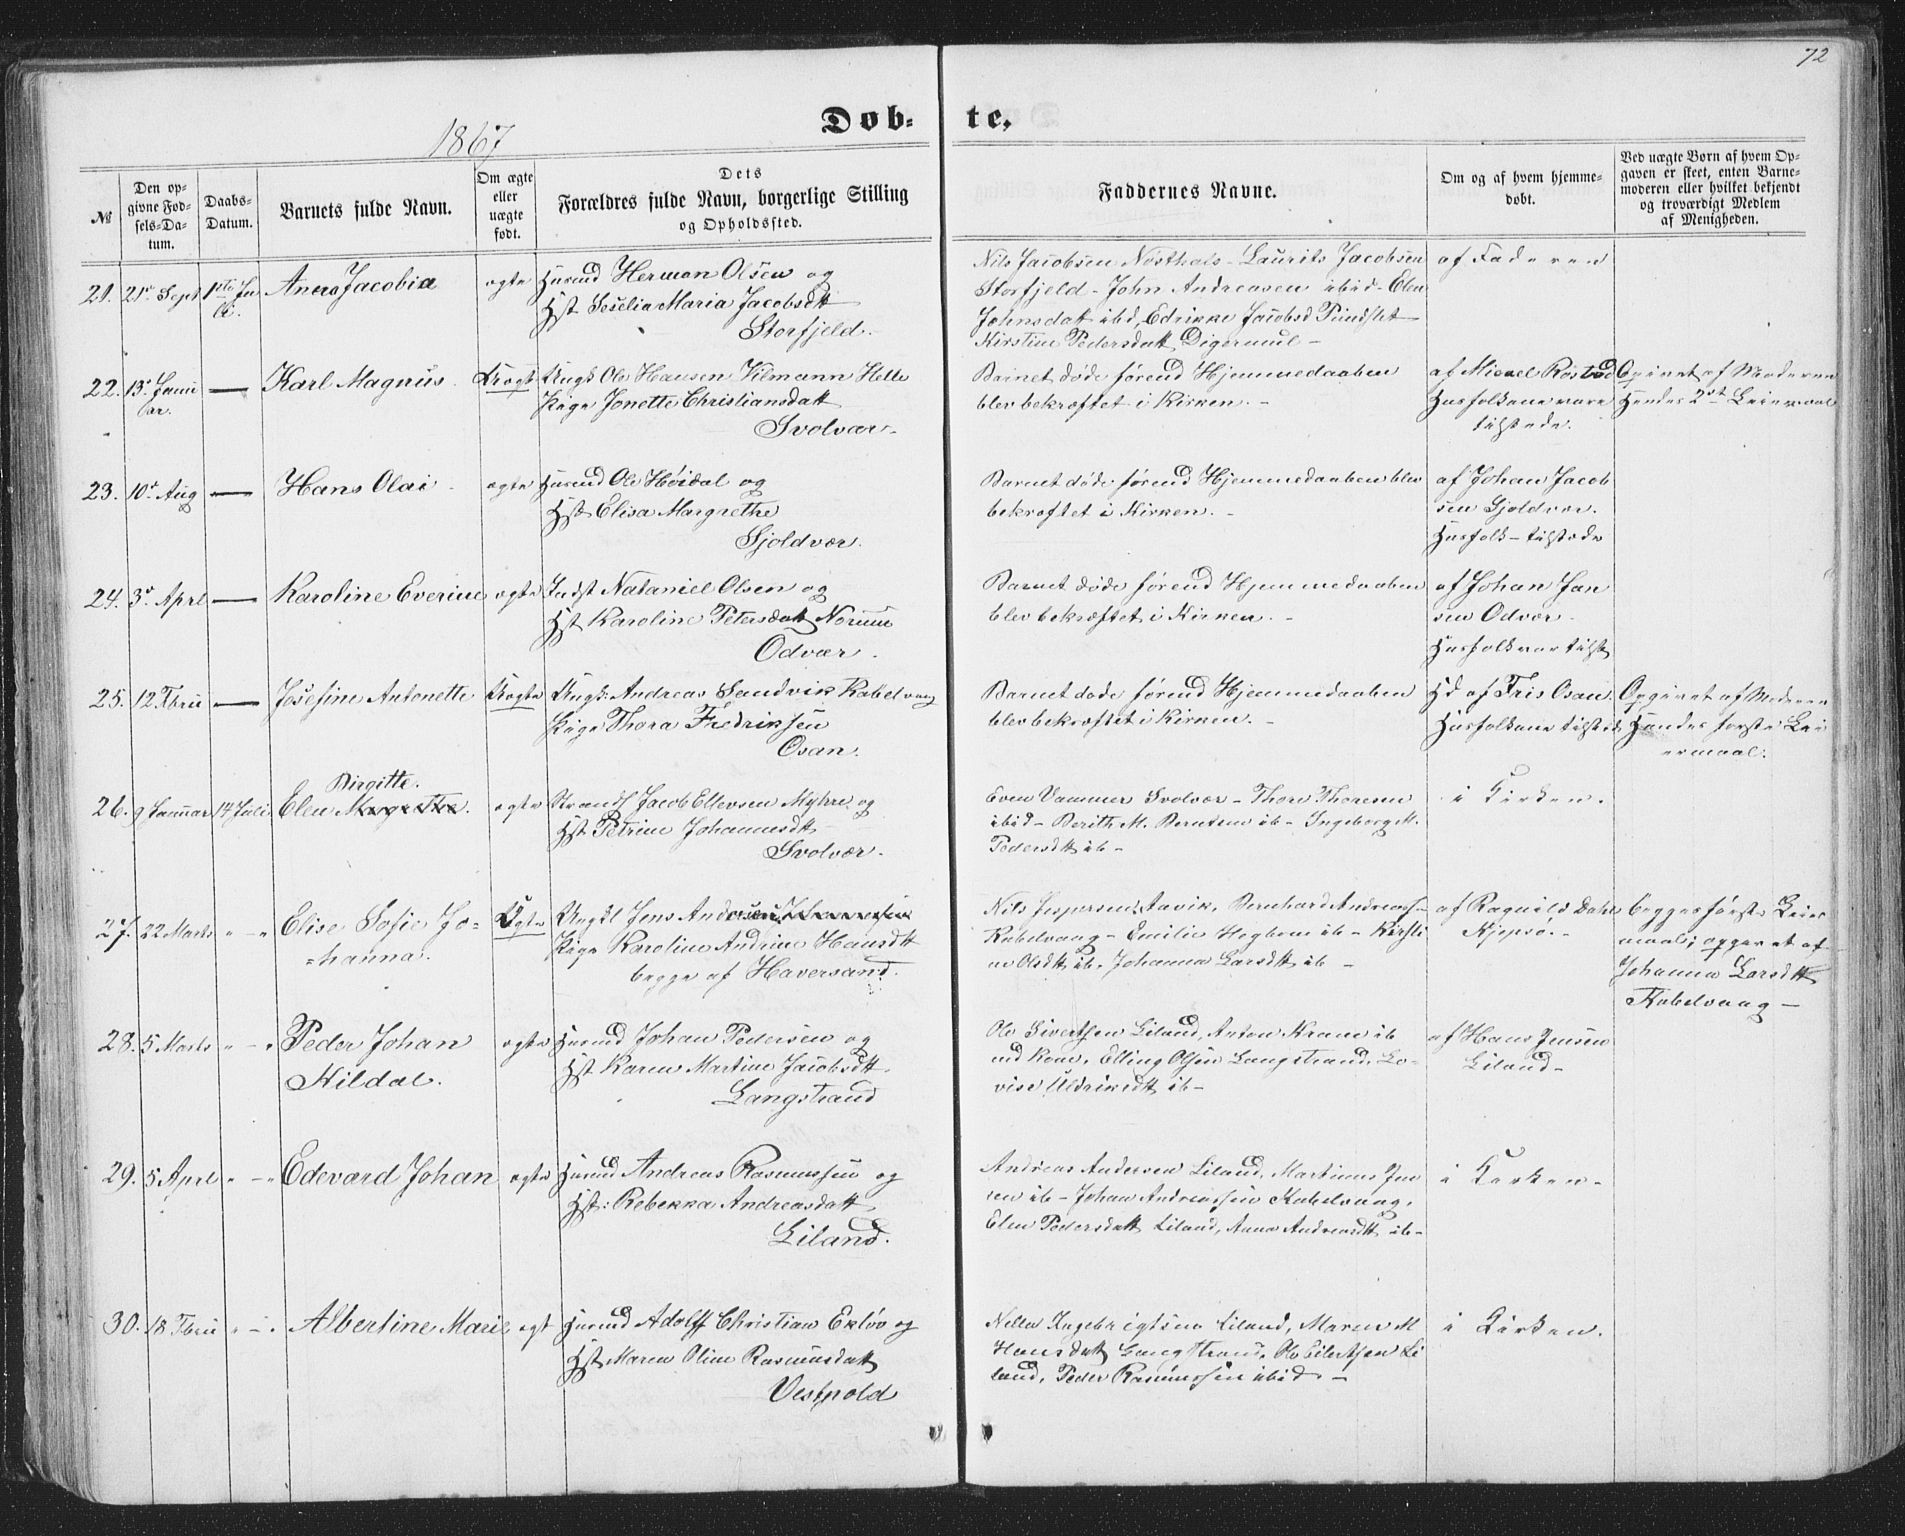 72
1867
Døb-te.
№
Den op-
givne Fød-
sels-Da-
tum.
Daabs-
Datum.
Barnets fulde Navn.
Om ægte
eller
uægte
født.
Dets
Forældres fulde Navn, borgerlige Stilling
og Opholdssted.
Faddernes Navne.
Om og af hvem hjemme-
døbt.
Ved uægte Børn af hvem Op-
gaven er skeet, enten Barne-
moderen eller hvilket bekjendt
og troværdigt Medlem
af Menigheden.
21. 21de Sept 1ste Ju
li.
Anera Jacobia
ægte
Husmd Herman Olsen og
Hst Seselia Maria Jacobsdtt
Storfjeld.
Nils Jacobsen Nøsthals - Laurits Jacobsen
Storfjeld - John Andreasen ibid - Elen
Johnsdatt ibd, Edrikke Jacobsd Pundslet
Kirstine Pedersdatt Digermul -
af Faderen
22. 13de Janu
ar.
Karl Magnus
Uægt
Ungk Ole Hansen Vilmann Helle
Pige Jonette Christiansdatt
Svolvær.
Barnet døde førend Hjemmedaaben
blev bekræftet i Kirken. -
af Mikael Røstad
Husfolkene vare
tilstede.
Opgivet af Moderen
Hendes 2det Leiermaal
23. 10de Aug
Hans Olai
ægte
Husmd Ole Høidal og
Hst Elisa Margrethe
Sjoldvær.
Barnet døde førend Hjemmedaaben blev
bekræftet i Kirken. -
af Johan Jacob
sen Gjoldvær.
Husfolk - tilstede
24. 3de Aprl
Karoline Everine
ægte
Indst Nataniel Olsen og
Hst Karoline Petersdatt Norum
Odvær.
Barnet døde førend Hjemmedaaben
blev bekræftet i Kirken. -
af Johan Jan
sen Odvær.
Husfolk var tilst
25. 12 Fbru
Josefine Antonette
Uægte
Ungk: Andreas Sandvik Kabelvaag
Pige Thora Fredriksen
Osan.
Barnet døde førend Hjemmedaaben
blev bekræftet i Kirken. -
Hd af Fris Osan.
Husfolkene tilstede
Opgivet af Moderen
Hendes første Lei
ermaal.
26. 9 Januar 14 Juli
Birgitte.
Elen Margrethe.
ægte
Strands Jacob Ellevsen Myhre og
Hst Petrine Johannesdtt
Svolvær.
Even Vammer Svolvær - Thore Thoresen
ibid - Berith M. Berntsen ib - Ingeborg M.
Pedersdtt ib -
i Kirken.
27. 22 Marts " - "
Elise Sofie Jo-
hanna.
Uægte
Ungkl Jens Andersen
Pige Karoline Andrine Hansdtt
begge af Haversand.
Nils Jespersen Aavik, Bernhard Andreas
Kabelvaag - Emilie Hegbom ib - Kirsti
ne Olsdtt ib. Johanna Larsdtt ib -
af Ragnild Dahl
Kjepsø. -
begges første Leier
maal; opgivet af
Johanna Larsdtt
Kabelvaag -
28. 5 Marts " - "
Peder Johan
Hildal.
ægte
Husmd Johan Pedersen og
Hst Karen Martine Jacobsdtt
Langstrand
Ole Sivertsen Liland, Anton Krane ib
md kone, Elling Olsen Langstrand, Lo-
vise Uldriksdtt ib -
af Hans Jensen
Liland -
29. 5 Aprl " - "
Edevard Johan
ægte
Husmd Andreas Rasmussen og
Hst: Rebekka Andreasdatt
Liland.
Andreas Andersen Liland, Martinus Jen
sen ib - Johan Andreassen Kabelvaag,
Elen Pedersdatt Liland, Anna Andreasdtt ib -
i Kirken -
30. 18 Fbru " - "
Albertine Marie
ægt
Husmd Adolf Christian Ekløv og
Hst Maren Oline Rasmusdatt
Vestpold
Nille Ingebrigtsen Liland, Maren M
Hansdatt Langstrand, Ole Eilertsen Li
land, Peder Rasmussen ibid -
i Kirken.